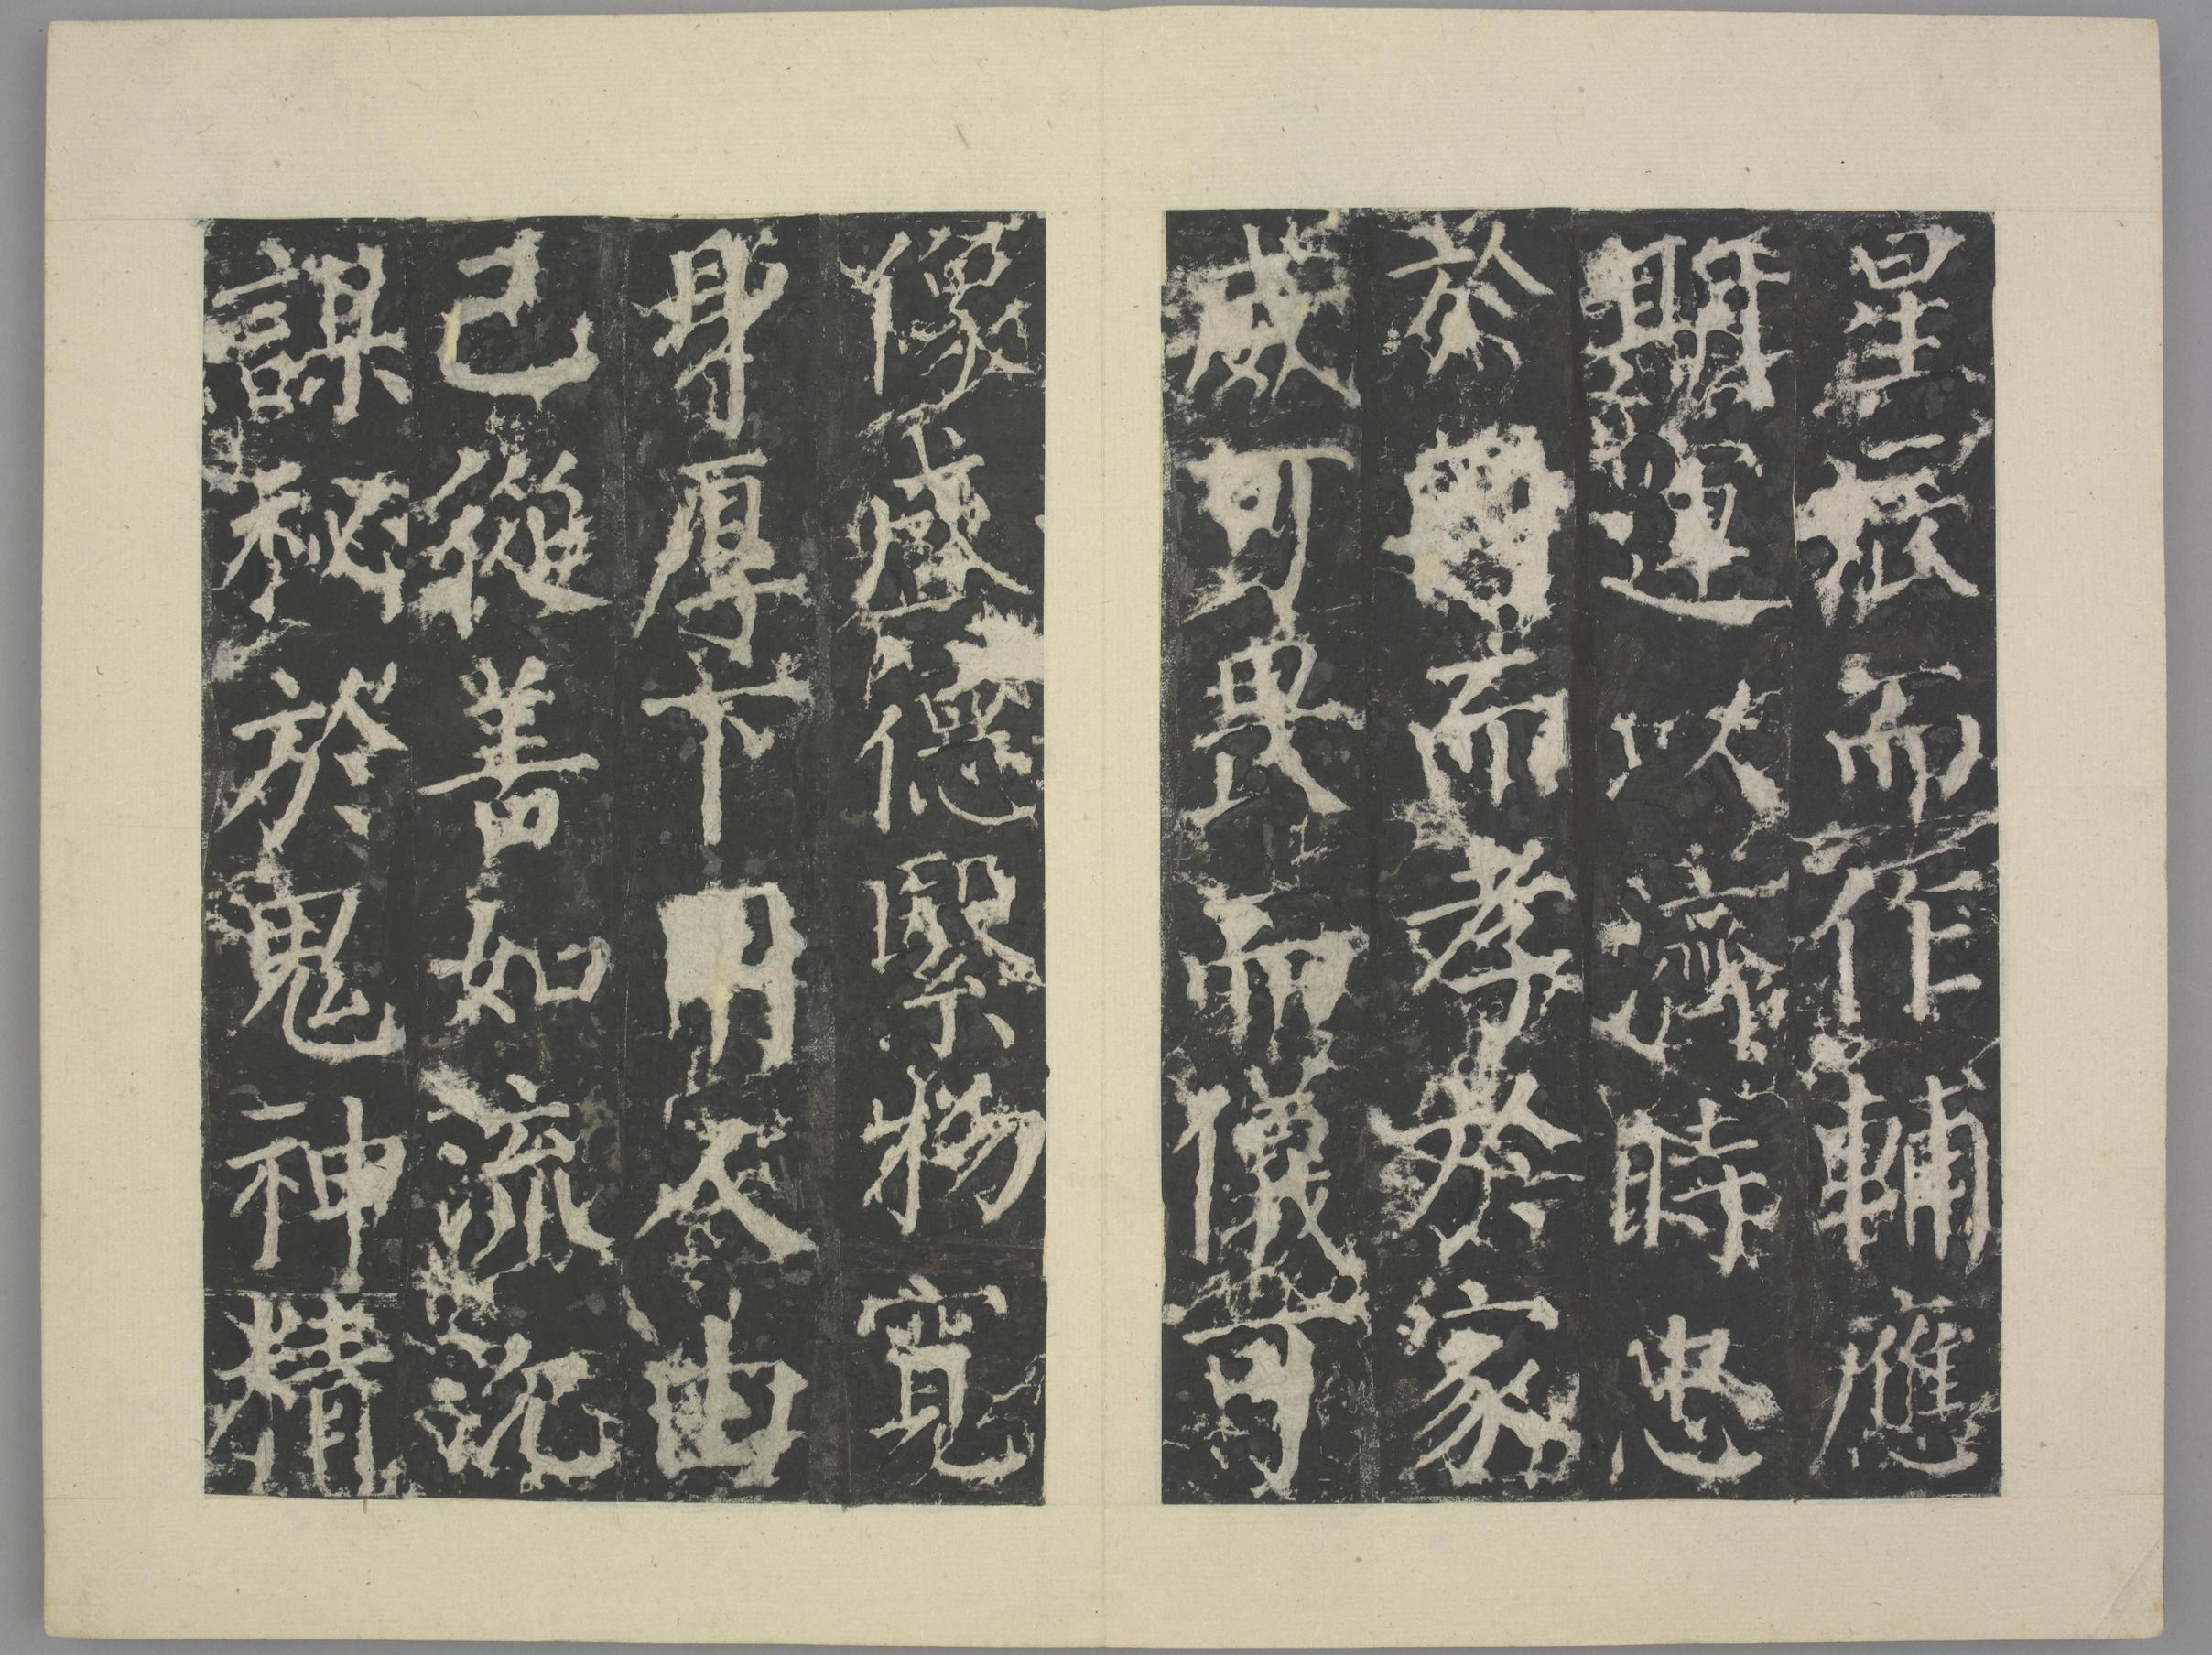 星辰而作輔應
期運以濟時忠
於國而孝於家
威可畏而儀可
像盛德緊物寬
身厚下用人由
己從善如流沉
謀秘於鬼神精